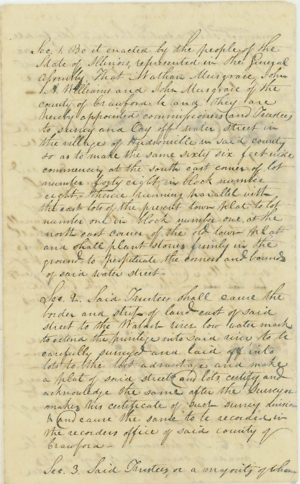 Sec. 1. Be it enacted by the people of the
State of Illinois, represented in the General
Assembly, That Nathan Musgrave, John
A. Williams and John Musgrave of the
county of Crawford be and they are
hereby appointed commissioners and Trustees
to survey and lay off water street in
the village of Hudsonville in said county
so as to make the same sixty six feet wide
commencing at the south east corner of lot
number forty eight in block number
eight. thence running parallel with
the east lots of the present town plat to lot
number one in block number one at the
north east corner of the old town plat
and shall plant stones firmly in the
ground to perpetuate the corners and bounds
of said water street.
Sec. 2. Said Trustees shall cause the
border and strip of land east of said
street to the Wabash river low water mark
to extend the privileges into said river to be
carefully surveyed and laid off into
lots to the best advantage and make
a plat of said street and lots certify and
acknowledge the same after the Surveyor
makes his certificate of such survey
and cause the same to be recorded in
the recorders office of said county of
Crawford
Sec. 3. Said Trustees or a majority of them